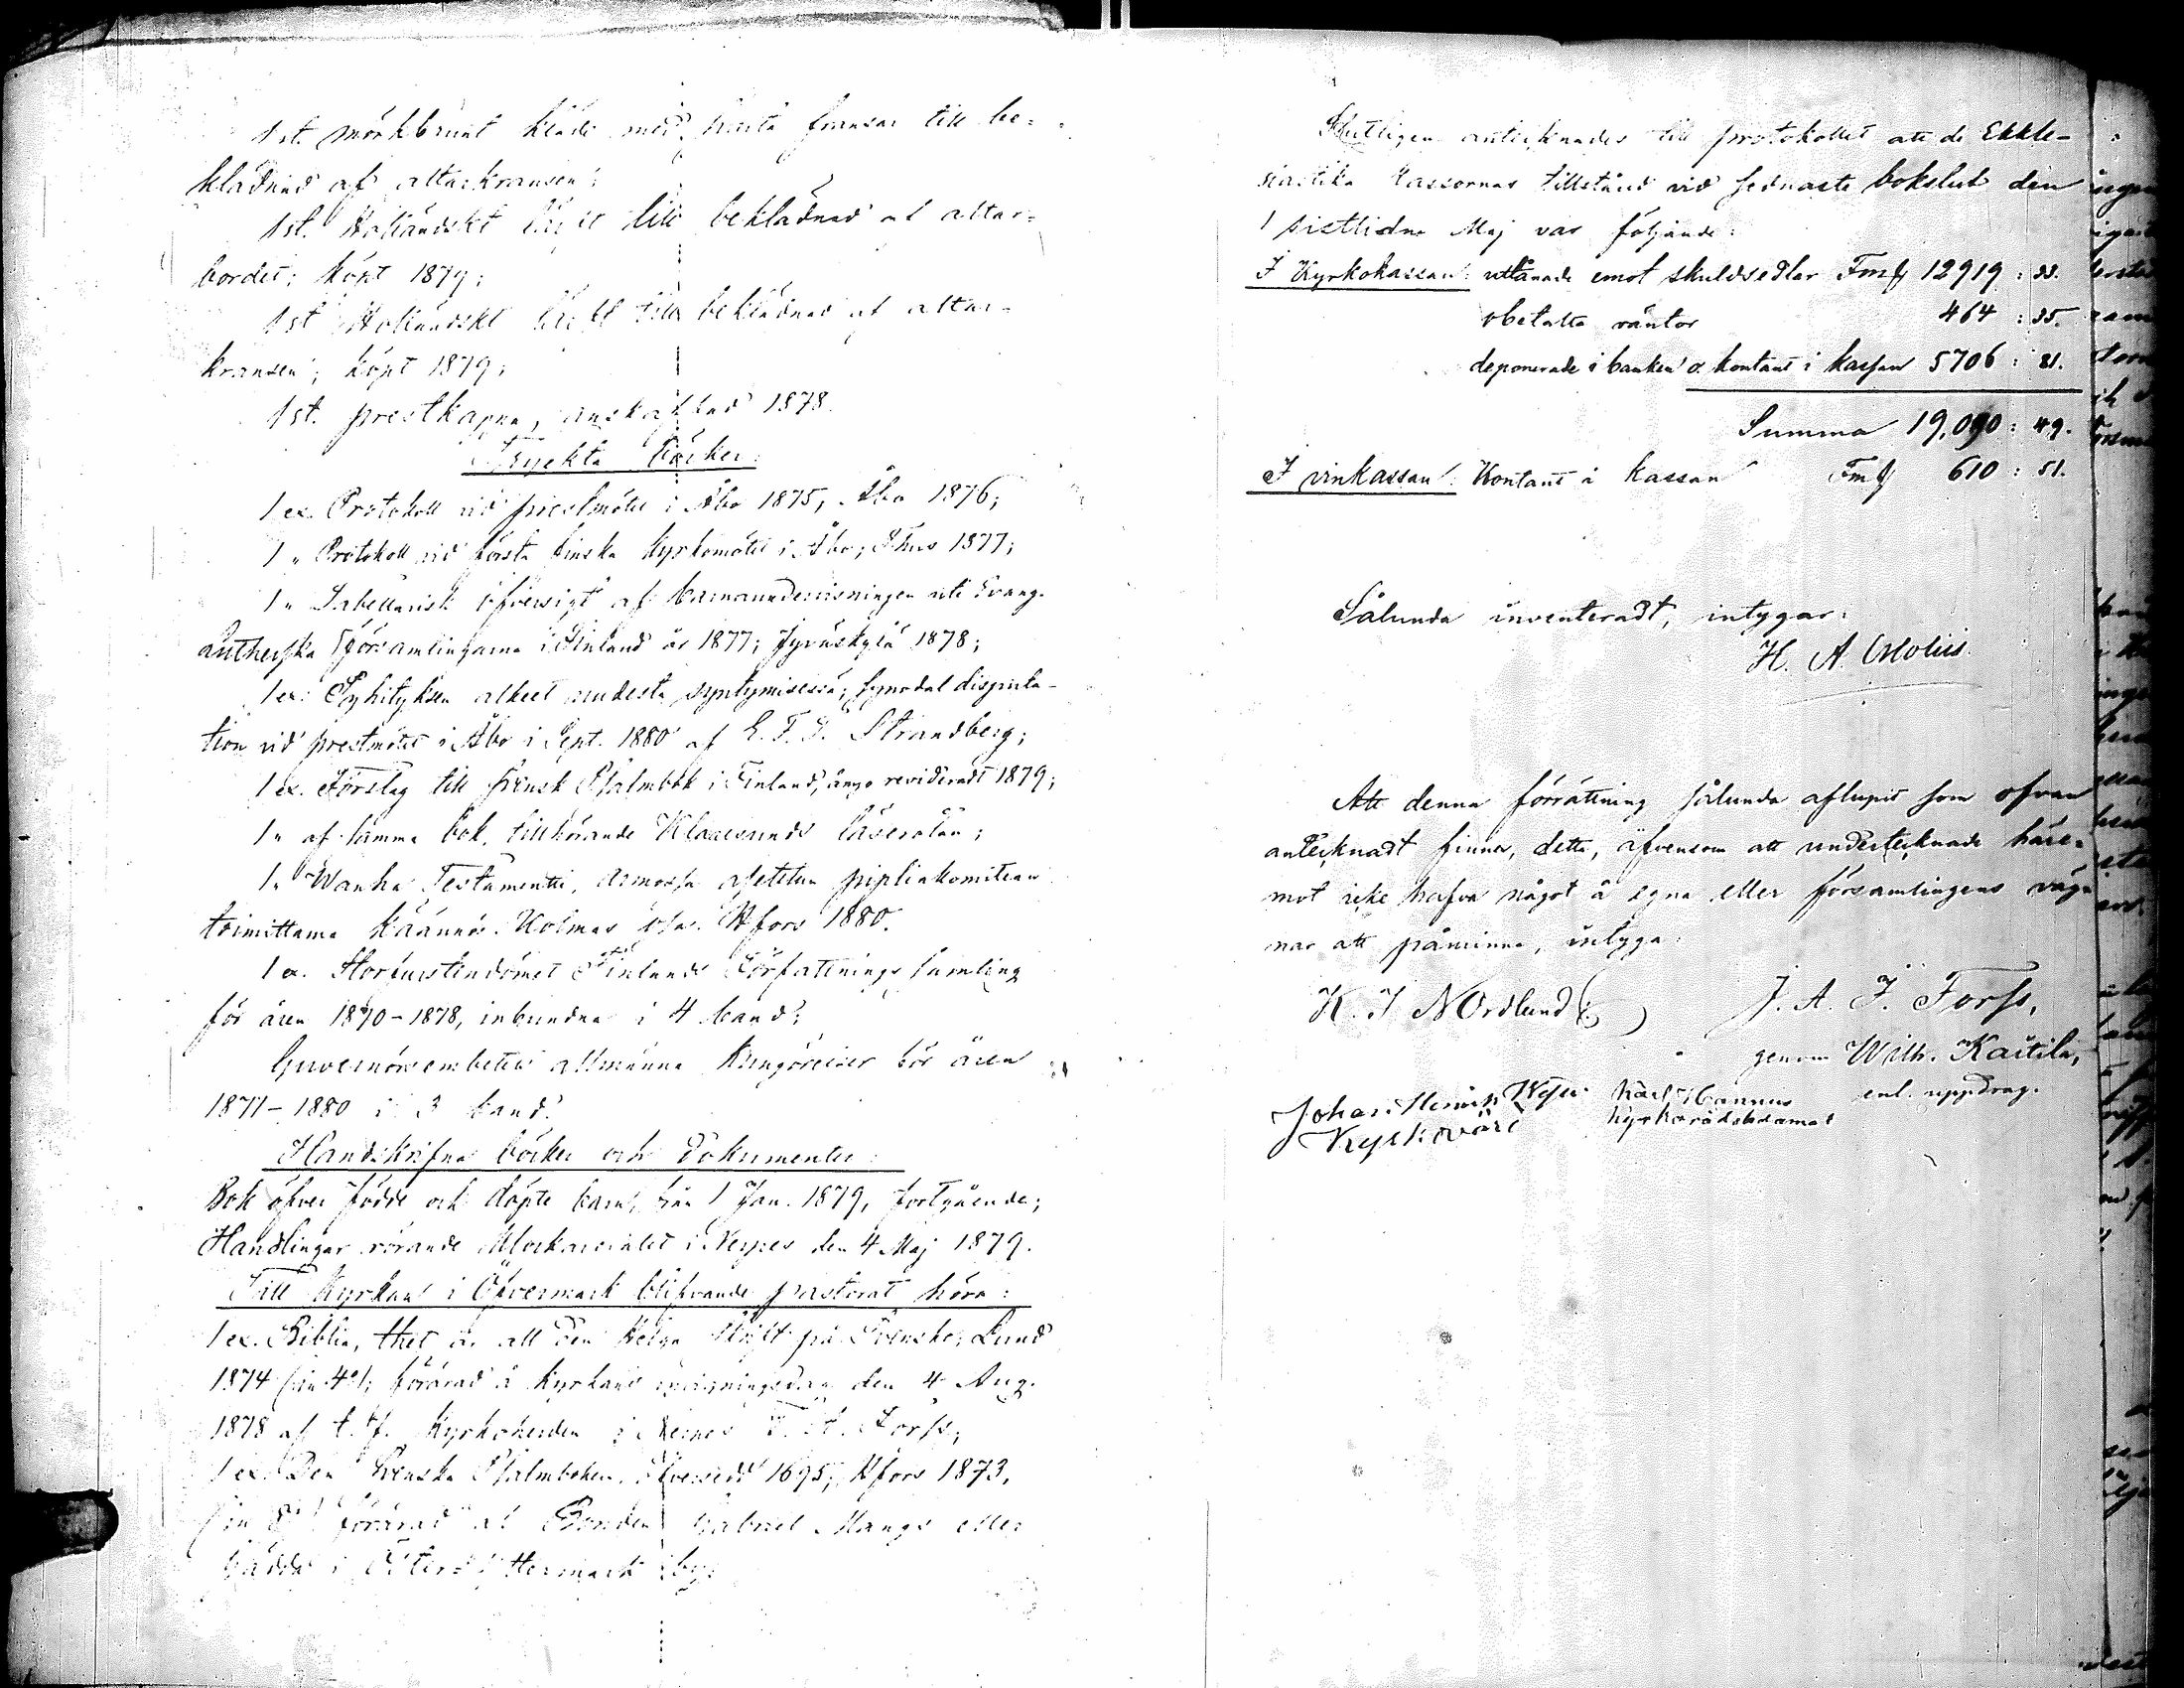 1 st. mörkbrunt kläde med hvita fransar till be-
klädnad af altarkransen;
1 st. Holländskt till beklädnad af altar-
bordet; köpt 1879;
1 st Holländskt till beklädnad af altar-
kransen; köpt 1879;
1 st. prestkappa, anskaffad 1878.
Tryckta böcker:
1 ex. Protokoll vid prestmötet i Åbo 1875, Åbo 1876;
1 " Protokoll vid första finska Kyrkomötet i Åbo; 1877;
1 " Tabellarisk öfversigt af barnaundervisningen uti Evang.
Lutherska församlingarna i Finland år 1877; Jyväskylä 1878;
1 ex: Syhityksen alkeet uudesta syntymisessä; synodal disputa-
tion vid prestmötet i Åbo i Sept. 1880 af E. F. Strandberg;
1 ex. Förslag till Svensk Psalmbok i Finland, ånyo revideradt 1879;
1 " af samma bok, tillhörande läserotan;
1 " Wanha Testamentti, Armossa asetetun pipliakomitean
toimittama käännös. Kolmas Hfors 1880.
1 ex. Storfurstendömet Finlands Författnings Samling
för åren 1870-1878, inbundna i 4 band;
Guvernörsembetets allmänna kungörelser för åren
1877-1880 i 3 band.
Handskrifna böcker och Dokumenter:
Bok öfver födde och döpte barn, från 1 Jan. 1879, fortgående;
Handlingar rörande i Nerpes den 4 Maj 1879.
Till Kyrkan i Öfvermark blifvande pastorat höra:
1 ex. Biblia, thet är all den Helga Skrift på Svensko; Lund
1874 (in 4:o); förärad å kyrkans invigningsdag den 4 Aug.
1878 af t. f. Kyrkoherden i Nerpes Forss;
1 ex. Den Svenska Psalmboken, öfversedd 1695; Hfors 1873,
(in förärad af Bonden Gabriel Mangs eller
i by.
Slutligen antecknades till protokollet att de Ekkle-
siastika kassornas tillstånd vid sednaste bokslut den
1 sistlidne Maj var följande:
I Kyrkokassan: utlånade emot skuldsedlar Fmk 12919: 33.
obetalta räntor 464: 35.
deponerade i banken o. kontant i kassan 5706: 81.
Summa 19,090: 49.
I vinkassan: Kontant i kassan Fmk 610: 51.
Sålunda inventeradt, intygar:
H. A. Molius.
Att denna förrättning sålunda aflupit som ofvan
antecknadt finnes, detta, äfvensom att undertecknade häre-
mot icke hafva något å egna eller församlingens väg-
nar att påminna, intyga:
K. J Nordlund
J. A. F. Forss,
genom Wilh. Kastila,
enl. uppdrag.
Johan Henrik
Kyrkovärd
Karl Hannus
Kyrkorådsledamot